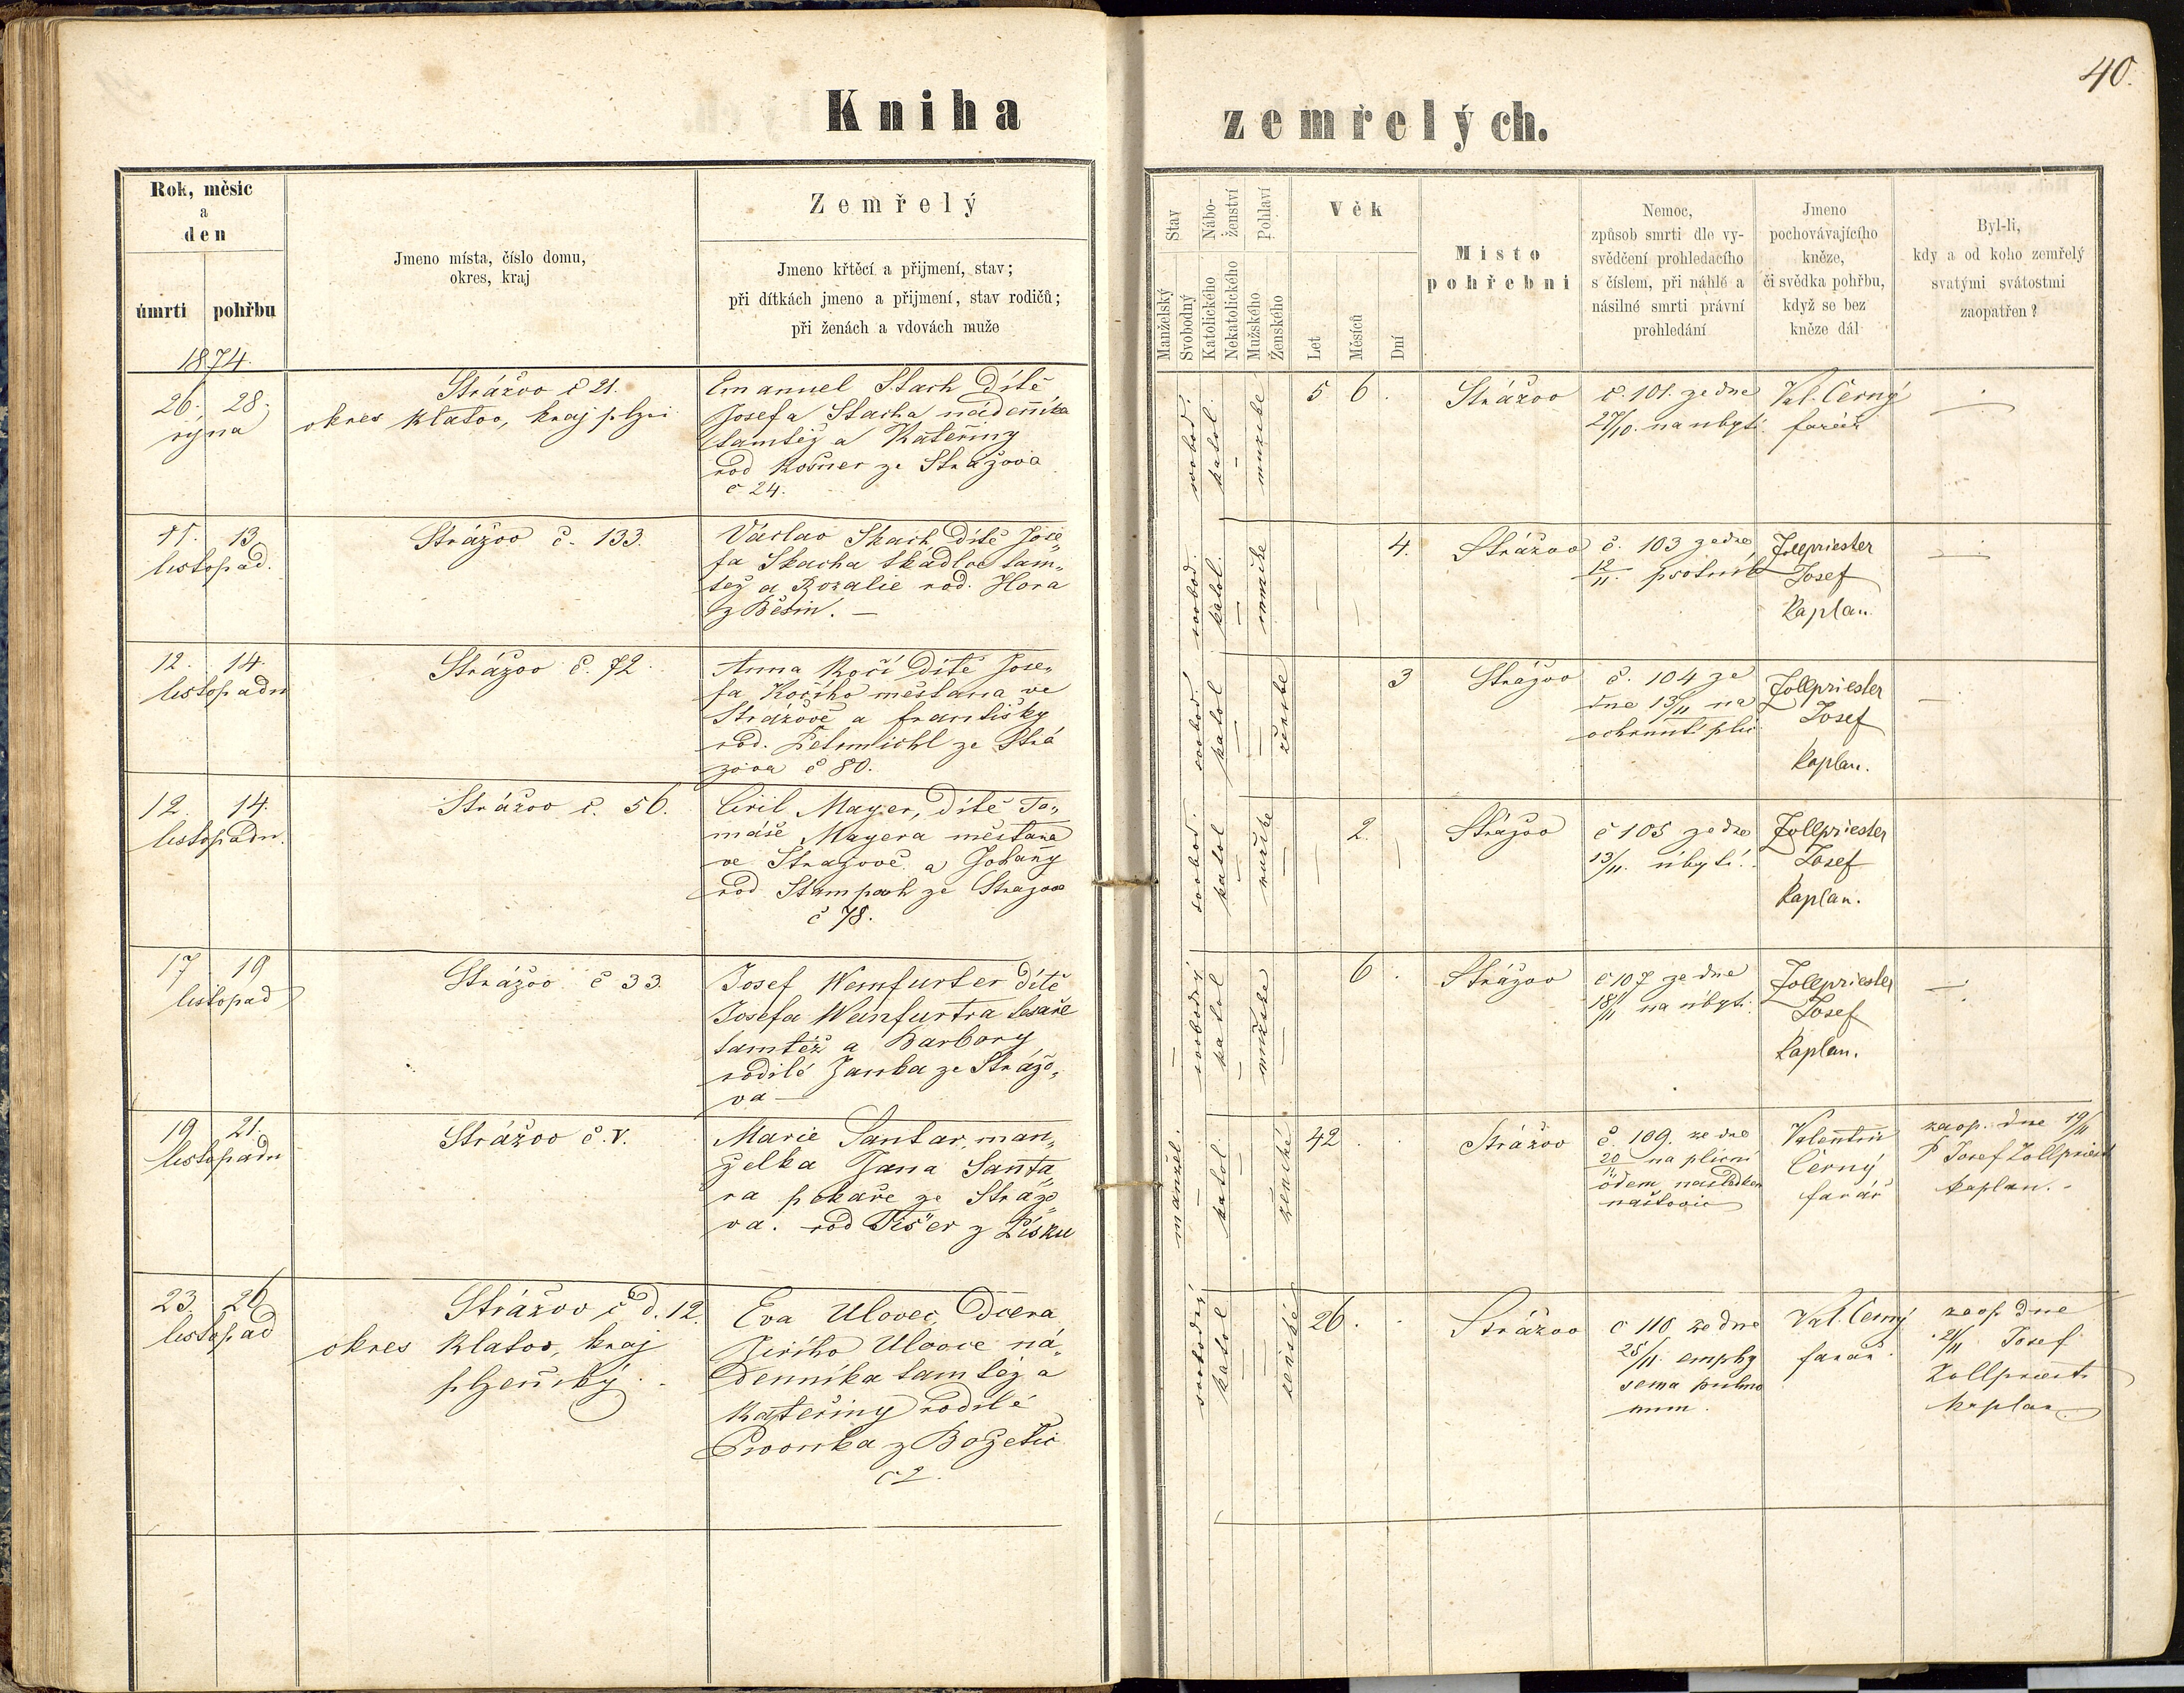 40.
Kniha zemřelých.
Rok, měsíc
a
den
úmrti pohřbu
Jmeno místa, číslo domu,
okres, kraj
Zemřelý
Jmeno křtěcí a přijmení, stav;
při dítkách jmeno a přijmení, stav rodičů;
při ženách a vdovách muže
Stav
Manželský
Svobodný
Nábo-
ženství
Katolického
Nekatolického
Pohlaví
Mužského
Ženského
Věk
Let
Měsíců
Dní
Místo
pohřební
Nemoc,
způsob smrti dle vy-
svědčení prohledacího
s číslem, při náhlé a
násilné smrti právní
prohledání
Jmeno
pochovávajícího
kněze,
či svědka pohřbu,
když se bez
kněze dál
Byl-li,
kdy a od koho zemřelý
svatými svátostmi
zaopatřen?
1874.
26. 28.
října
Strážov č 21.
okres Klatov, kraj plzn
Emanuel Stach dítě
Josefa Stacha nádeníka
tamtéž a Kateřiny
rod Košner ze Strážova
č 24.
svobod.
katol.
mužské
5 6.
Strážov
č. 101. ze dne
27/10. na ubytí
Val. Černý
farář
11. 13.
listopad.
Strážov č. 133.
Václav Skach dítě Jose„
fa Skacha tkadlce tam„
též a Rozalie rod. Hora
z Běšin. —
svobod.
katol.
mužské
4.
Strážov
č. 103 ze dne
12/11. psotník
Zollpriester
Josef
kaplan.
12. 14.
listopadu
Strážov č. 72.
Anna Kočí dítě Jose„
fa Kočího měšťana ve
Strážově a Františky
rod. ze Strá
žova č 80.
svobod.
katol
ženské
3
Strážov
č. 104 ze
dne 13/11 na
ochrnutí plic
Zollpriester
Josef
kaplan.
12. 14.
listopadu.
Strážov č. 56.
Ciril Mayer, dítě To„
máše Mayera měšťana
ve Stražově a Johany
rod Stampach ze Stražova
č 78.
svobod.
katol
2.
Strážov
č 105 ze dne
13/11. úbytí.
Zollpriester
Josef
kaplan.
17 19
listopad
Strážov č 33.
Josef Weinfurter dítě
Josefa Weinfurtra tesaře
tamtéž a Barbory
rodilé Janka ze Strážo„
va —
svobodný
katol
mužské
6.
Strážov
č 107 ze dne
18/11 na úbytí.
Zollpriester
Josef
kaplan.
19 21.
listopadu
Strážov č. V.
Marie Santar, man„
želka Jana Santa„
ra pekaře ze Strážo„
va. rod Fišer z Písku
manžel.
katol.
ženské
42
Strážov
č. 109. ze dne
20/11 na plicní
ödem následkem
naštovic
Valentin
Černý
farář
zaop. dne 19/11
P Josef Zollpriest
kaplan.
23. 26
listopad
Strážov č d. 12.
okres Klatov, kraj
plzeňský.
Eva Ulovec, dcera
Jiřího Ulovce ná„
denníka tamtéž a
Kateřiny rodilé
z Božetic
č 2.
svobodný
katol
ženské
26.
Strážov
č 110 ze dne
25/11. emphy
sema pulmo
num.
Val. Černý
farář.
zaop dne
21/11 Josef
Zollpriest.
kaplan